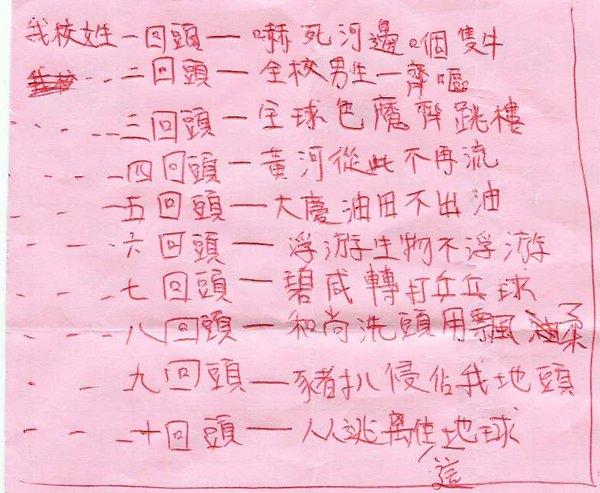 我校女生一回頭—嚇死河邊嗰隻牛
- - - 二回頭—全校男生一齊嘔
- - - 三回頭—全球色魔齊跳樓
- - - 四回頭—黃河從此不再流
- - - 五回頭—大慶油田不出油
- - - 六回頭—浮游生物不浮游
- - - 七回頭—碧咸轉打乒乓球
- - - 八回頭—和尚洗頭用飄柔
- - 九回頭—豬扒侵佔我地頭
- - - 十回頭—人人逃離這地球